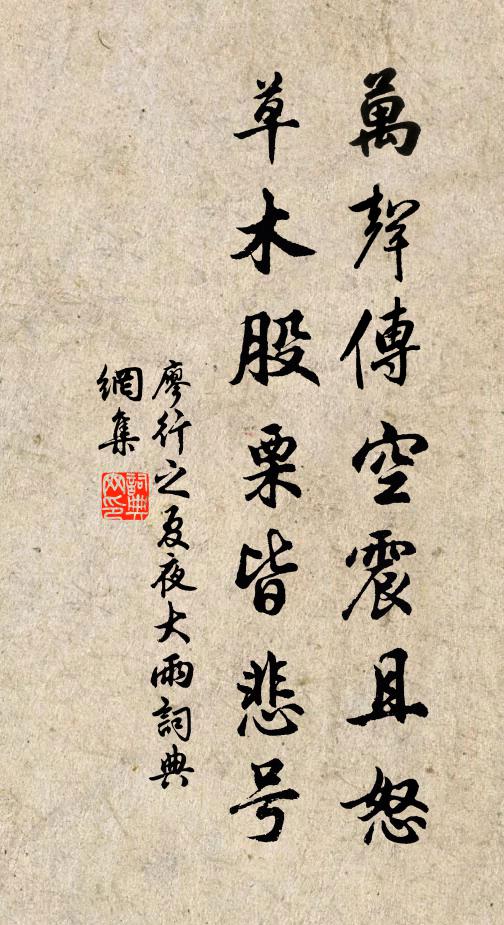 萬聲傳空震且怒
草木股栗皆悲号
廖行之夏夜大雨詞典
網集
詞典网印